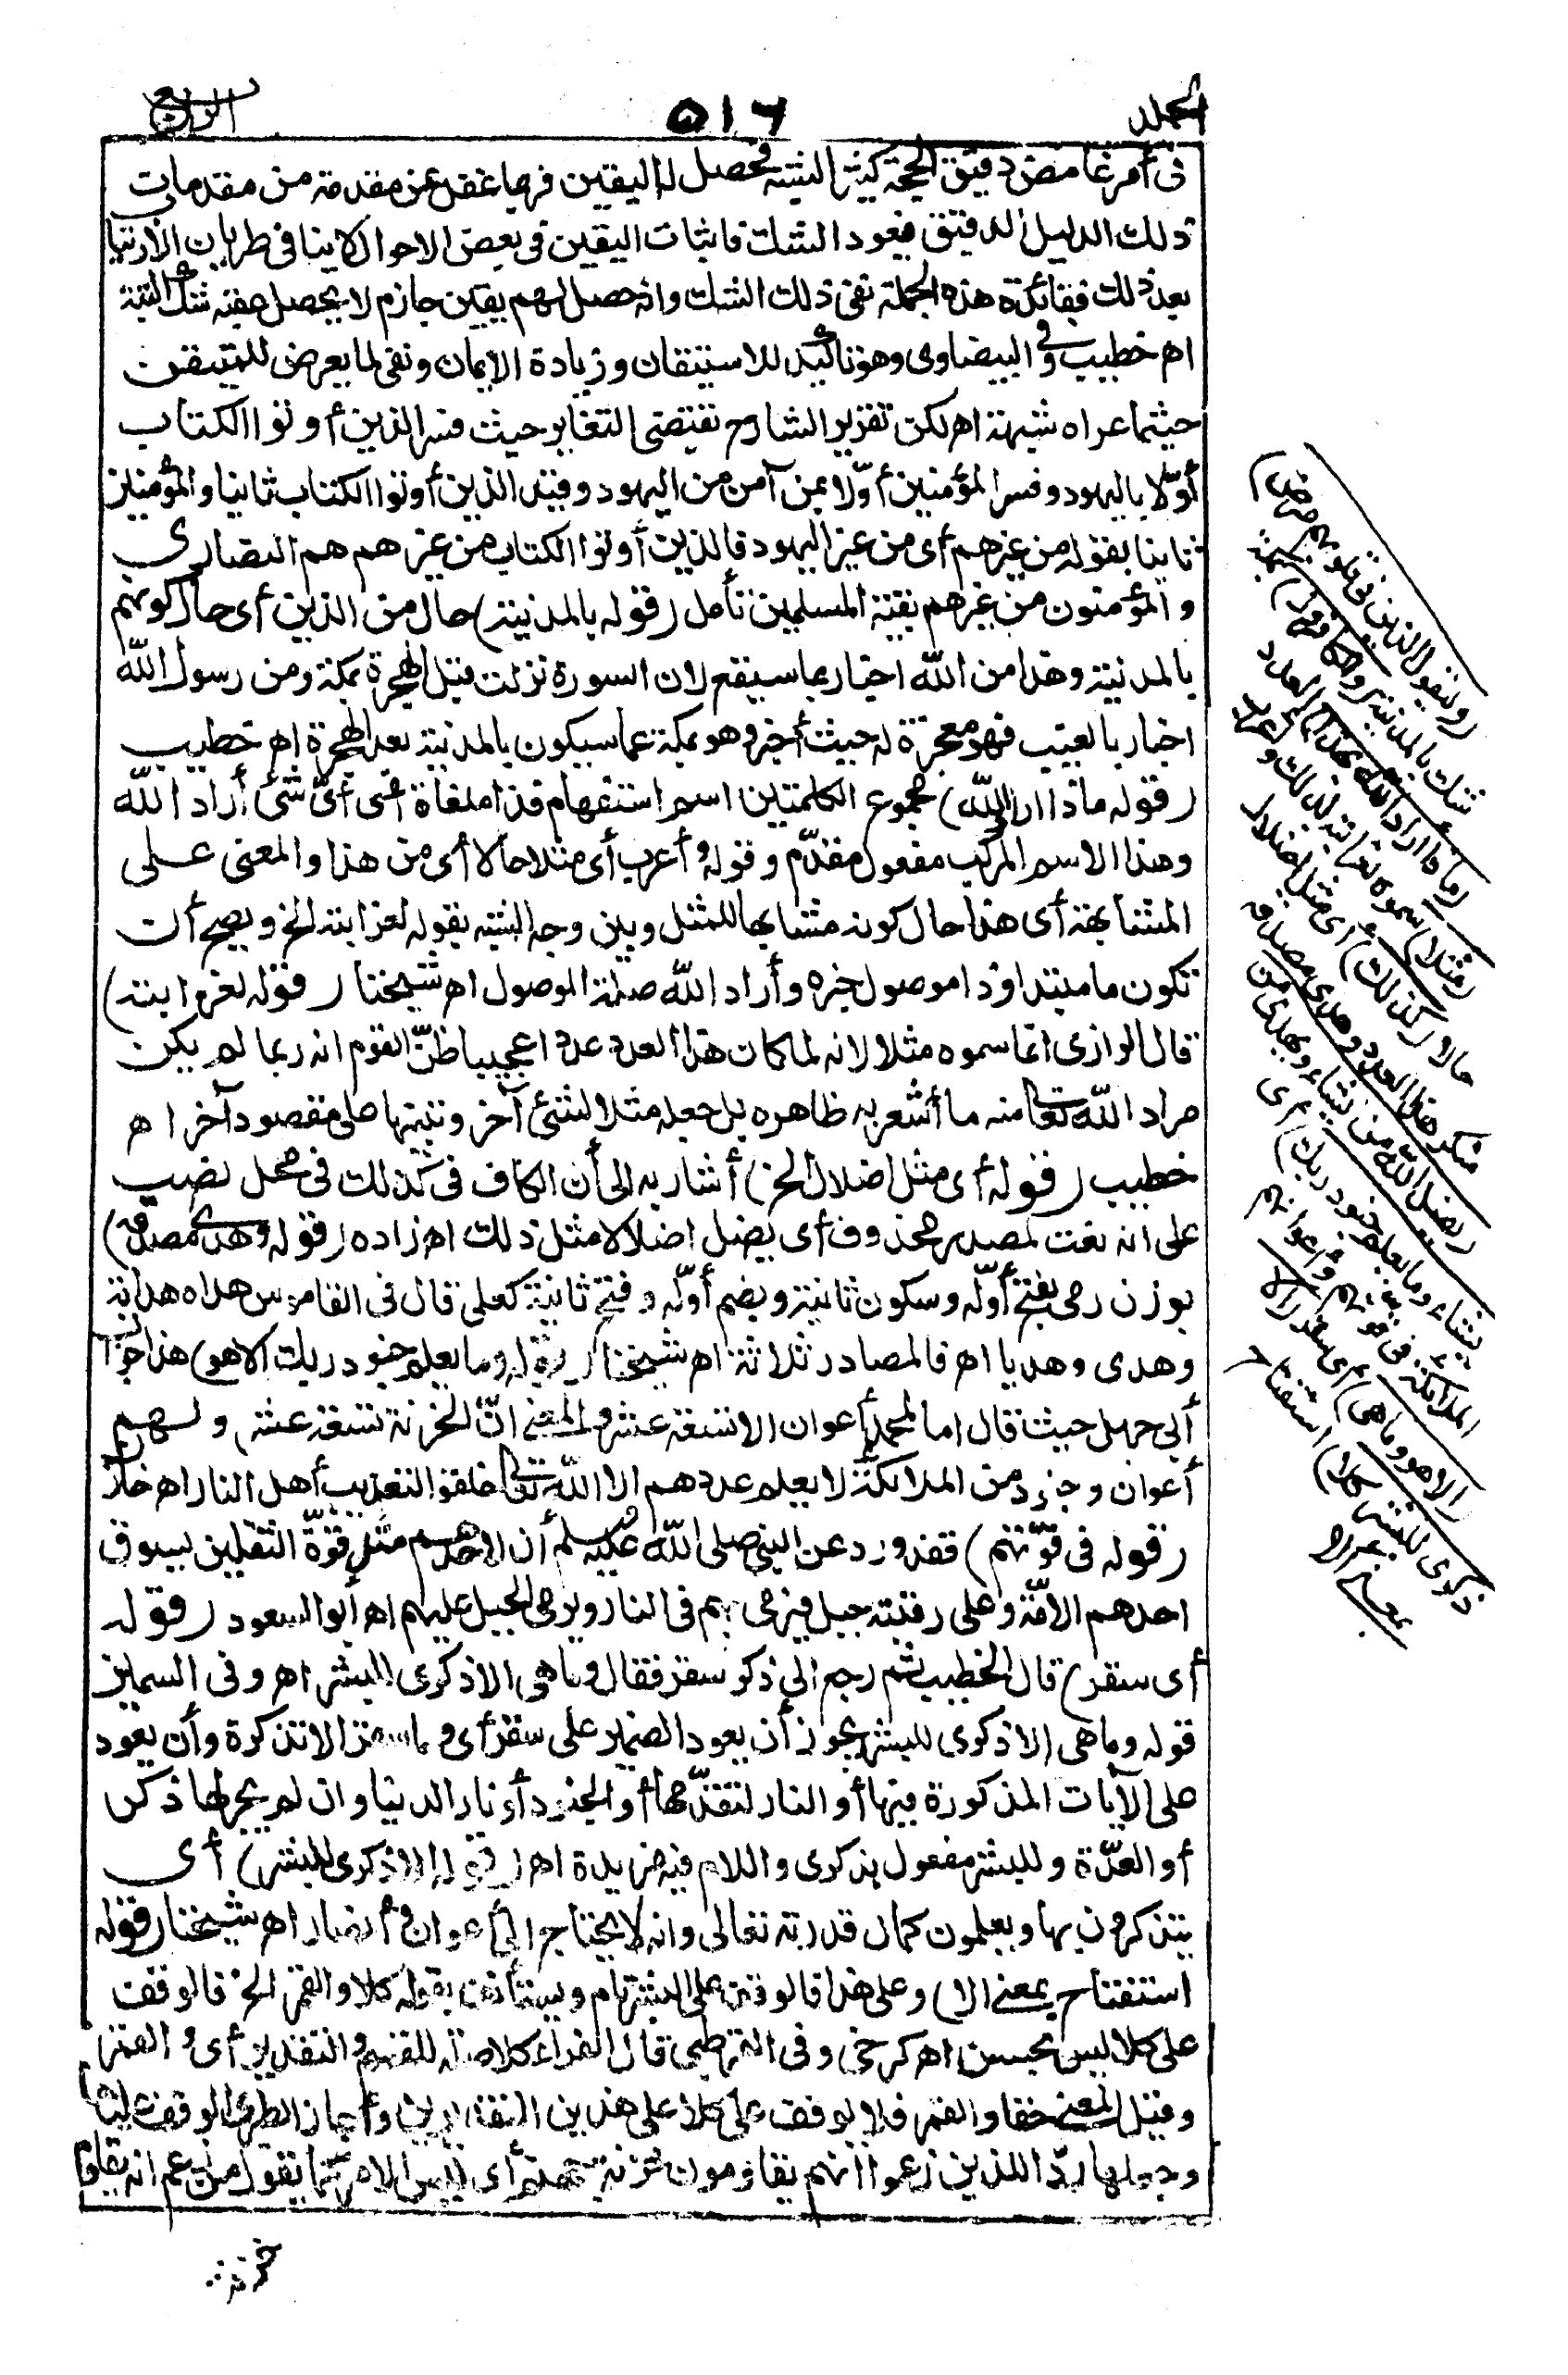 المجلد
٥١٦
الرابع
فى أمر غامض دقيق الحجة كثير الشبه فحصل له اليقين فربما غفل عن مقدمة من مقدمات
ذلك الدليل الدقيق فيعود الشك فاثبات اليقين فى بعض الاحوال لا ينافى طريان الارتياب
بعد ذلك ففائدة هذه الجملة نفى ذلك الشك وانه حصل لهم يقين جازم لا يحصل عقبه شك البتة
اه خطيب وفى البيضاوى وهو تأكيد للاستيقان وزيادة الايمان ونفى لما يعرض للمتيقن
حيثما عراه شبهة اه لكن تقرير الشارح يقتضى التغاير حيث فسر الذين أوتوا الكتاب
أولا باليهود وفسر المؤمنين أولا بمن آمن من اليهود وقيد الذين أوتوا الكتاب ثانيا والمؤمنين
ثانيا بقوله من غيرهم أى من غير اليهود فالذين أوتوا الكتاب من غيرهم هم النصارى
والمؤمنون من غيرهم بقية المسلمين تأمل (قوله بالمدينة) حال من الذين أى حال كونهم
بالمدينة وهذا من الله اخبار بما سيقع لان السورة نزلت قبل الهجرة بمكة ومن رسول الله
اخبار بالغيب فهو معجزة له حيث أخبر وهو بمكة عما سيكون بالمدينة بعد الهجرة اه خطيب
(قوله ماذا اراد الله) مجموع الكلمتين اسم استفهام فذا ملغاة أى أىّ شئ أراد الله
وهذا الاسم المركب مفعول مقدّم وقوله وأعرب أى مثلا حالا أى من هذا والمعنى على
المتشابهة أى هذا حال كونه مشابها للمثل وبين وجه الشبه بقوله لغرابته الخ ويصح أن
تكون ما مبتدا وذا موصول خبره وأراد الله صلة الموصول اه شيخنا (قوله لغرابته)
قال الرازى انما سموه مثلا لانه لما كان هذا العدد عددا عجيبا ظنّ القوم انه ربما لم يكن
مراد الله تعالى منه ما أشعر به ظاهره بل جعله مثلا لشئ آخر وتنبيها على مقصود آخر اه
خطيب (قوله أى مثل اضلال الخ) أشار به الى أن الكاف فى كذلك فى محل نصب
على انه نعت لمصدر محذوف أى يضل اضلالا مثل ذلك اه زاده (قوله وهدى مصدق)
بوزن رمى بفتح أوّله وسكون ثانيه وبضم أوّله وفتح ثانيه كعلى قال فى القاموس هداه هداية
وهدى وهديا اه فالمصادر ثلاثة اه شيخنا (قوله وما يعلم جنود ربك الا هو) هذا جواب
أبى جهل حيث قال اما لمحمد أعوان الا تسعة عشر والمعنى انّ الخزنة تسعة عشر ولهم
أعوان وجنود من الملائكة لا يعلم عددهم الا الله تعالى خلقوا لتعذيب أهل النار اه خازن
(قوله فى قوّتهم) فقد ورد عن النبى صلى الله عليه وسلم أن لاحدهم مثل قوّة الثقلين يسوق
احدهم الامّة وعلى رقبته جبل فيرمى بهم فى النار ويرمى الجبل عليهم اه أبو السعود (قوله
أى سقر) قال الخطيب ثم رجع الى ذكر سقر فقال وما هى الا ذكرى للبشر اه وفى السمين
قوله وما هى الا ذكرى للبشر يجوز أن يعود الضمير على سقر أى وما سقر الا تذكرة وأن يعود
على الآيات المذكورة فيها أو النار لتقدّمها أو الجنود أو نار الدنيا وان لم يجر لها ذكر
أو العدّة وللبشر مفعول بذكرى واللام فيه مزيدة اه (قوله الا ذكرى للبشر) أى
يتذكرون بها ويعلمون كمال قدرته تعالى وانه لا يحتاج الى أعوان وأنصار اه شيخنا (قوله
استفتاح بمعنى الا) وعلى هذا فالوقف على البشر تام ويستأنف بقوله كلا والقمر الخ فالوقف
على كلا ليس بحسن اه كرخى وفى القرطبى قال الفراء كلا صلة للقسم والتقدير أى والقمر
وقيل المعنى حقا والقمر فلا يوقف على كلا على هذين التقديرين وأجاز الطبرى الوقف عليها
وجعلها ردّا للذين زعموا انهم يقاومون خزنة جهنم أى ليس الامر كما يقول من زعم انه يقاوم
خزنة
(وليقول الذين فى قلوبهم مرض)
شك بالمدينة (والكافرون) بمكة
(ماذا اراد الله بهذا) العدد
(مثلا) سموه لغرابته بذلك وأعرب
حالا (كذلك) أى مثل اضلال
منكر هذا العدد وهدى مصدقه
(يضل الله من يشاء ويهدى من
يشاء وما يعلم جنود ربك) أى
الملائكة فى قوتهم وأعوانهم
(الا هو وما هى) أى سقر (الا
ذكرى للبشر كلا) استفتاح
بمعنى الا